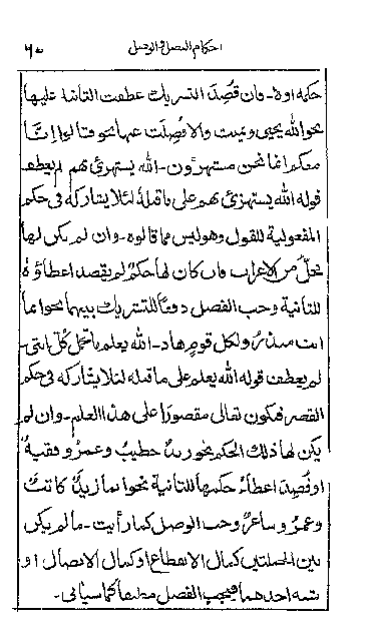 احكام الفصل والوصل ٦٥
حكمه اولا- فان قُصِدَ التشريك عطفت الثانية عليها
نحو الله يحيى ويميت والا فُصِلَت عنها نحو قالوا اِنَّا
معكم انما نحن مستهزؤن- الله يستهزئ بهم لم يعطف
قوله الله يستهزئ بهم على ما قبله لئلا يشاركه فى حكم
المفعولية للقول وهو ليس مما قالوه- وان لم يكن لها
محلٌّ من الاعراب فان كان لها حكمٌ لم يقصد اعطاؤه
للثانية وجب الفصل دفعًا للتشريك بينهما نحو انما
انت منذرٌ ولكل قومٍ هاد- الله يعلم ما تحمل كلّ انثى-
لم يعطف قوله الله يعلم على ما قبله لئلا يشاركه فى حكم
القصر فيكون تعالى مقصورًا على هذا العلم- وان لم
يكن لها ذلك الحكم نحو زيدٌ خطيبٌ وعمرٌو فقيهٌ
او قُصِدَ اعطاءُ حكمها للثانية نحو انما زيدٌ كاتبٌ
وعمرٌو شاعرٌ وجب الوصل كما رأيت- ما لم يكن
بين الجملتين كمال الانقطاع او كمال الاتصال او
شبه احدهما فيجب الفصل مطلقًا كما سيأتى-